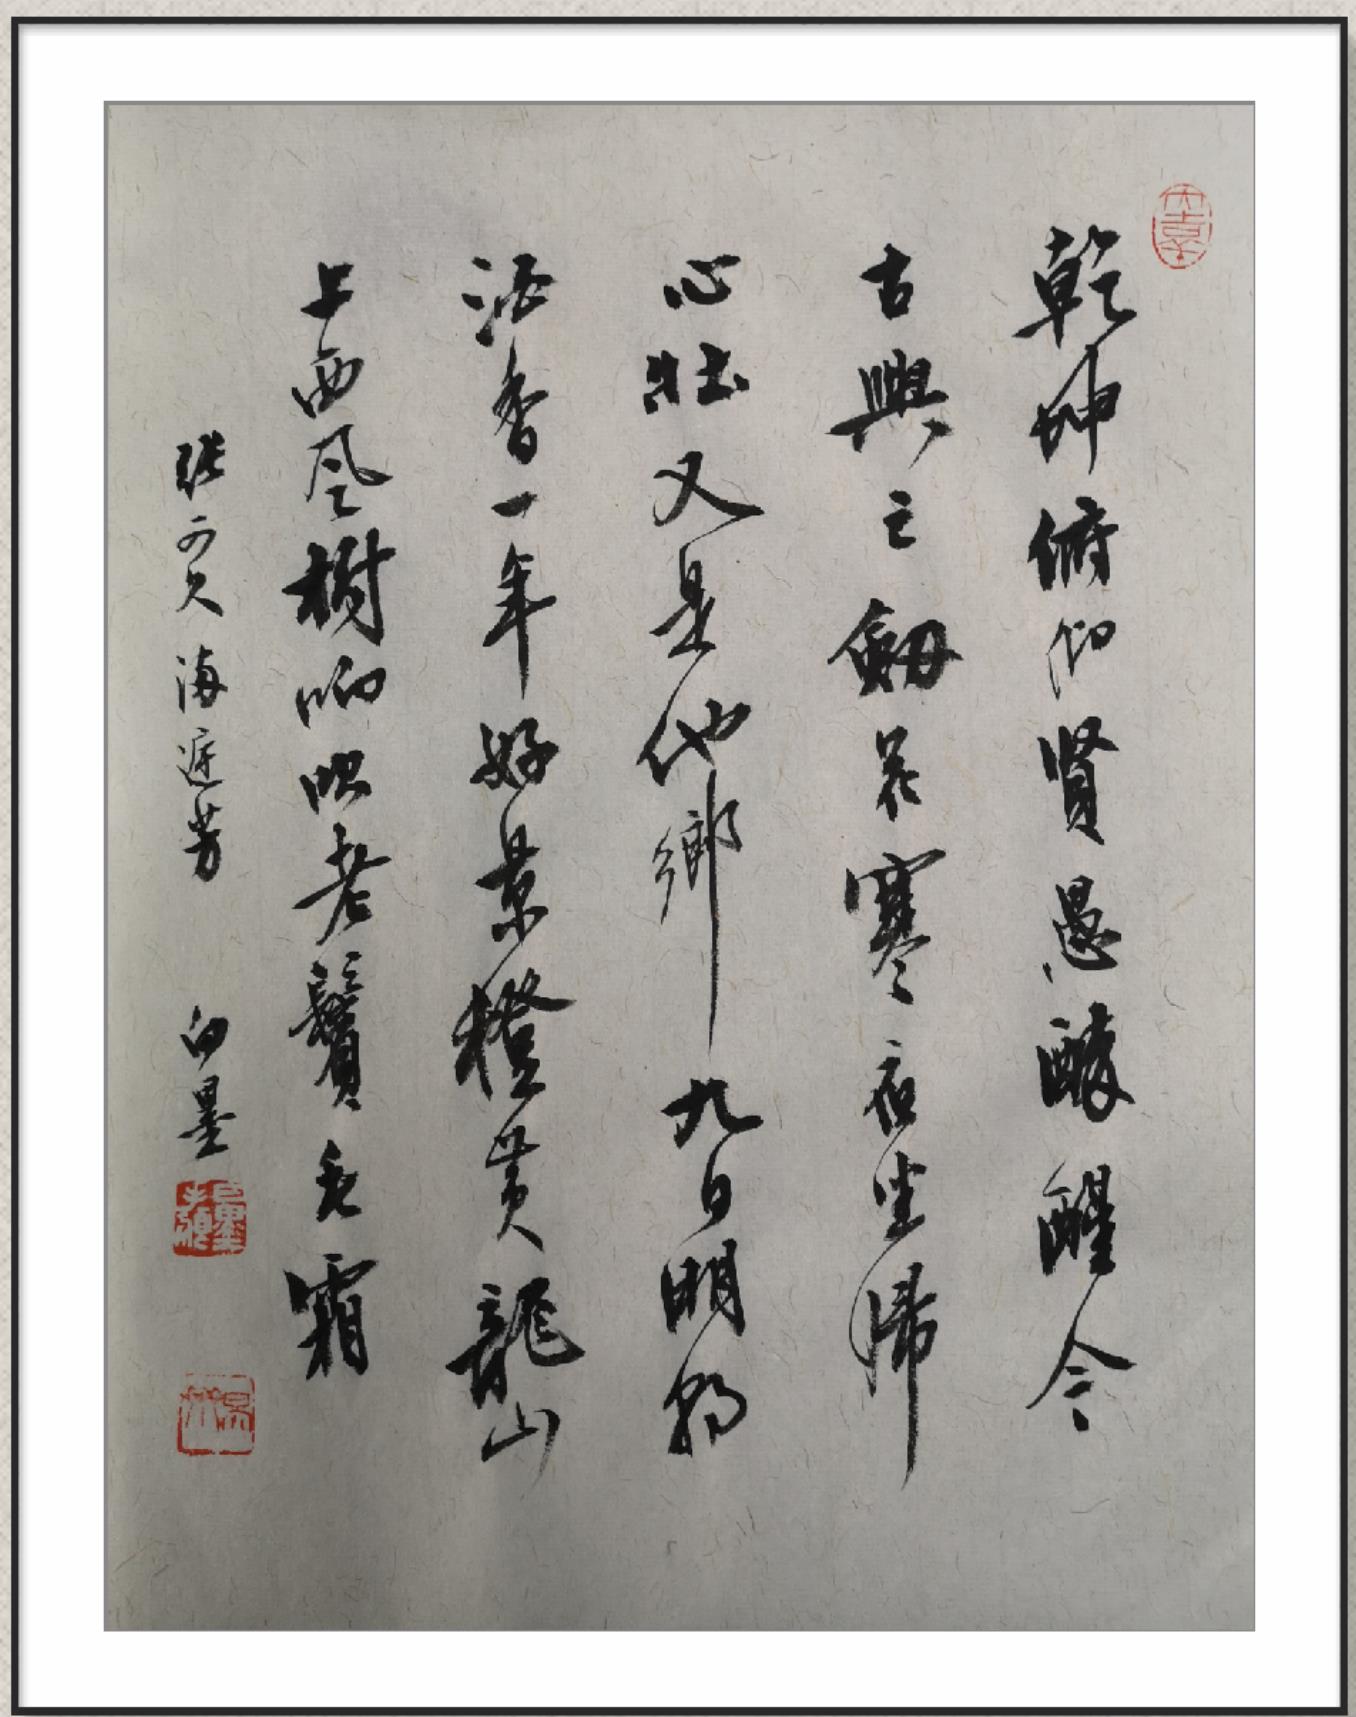 乾坤俯仰贤愚醉醒今
古興亡劔花寒夜坐歸
心壯又是他鄉九日明朝
酒香一年好景橙黄龍山
上西风樹响吹老鬢毛霜
张可久滿庭芳 白墨